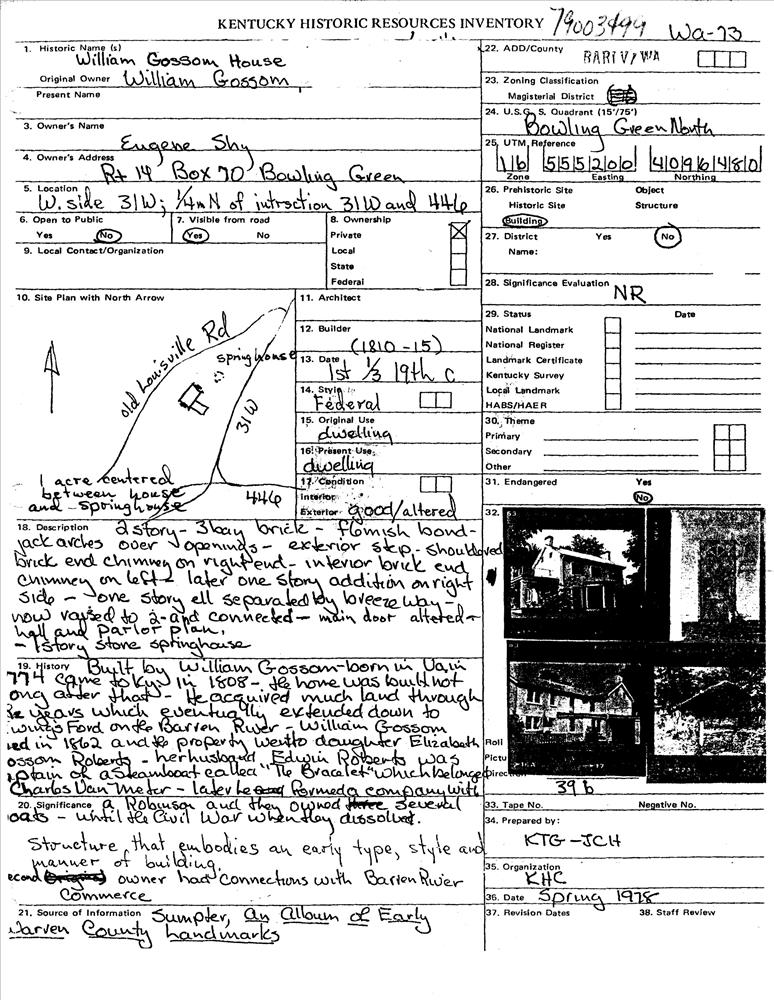 KENTUCKY HISTORIC RESOURCES INVENTORY 79003499 Wa-73
1. Historic Name (s)
William Gossom House
Original Owner William Gossom
Present Name
3. Owner's Name
Eugene Shy
4. Owner's Address
Rt 14 Box 70 Bowling Green
5. Location
W. side 31W; 1/4m N of intrsction 31W and 446
6. Open to Public
Yes No
7. Visible from road
Yes No
8. Ownership
Private
Local
State
Federal
9. Local Contact/Organization
10. Site Plan with North Arrow
old Louisville Rd
springhouse
31W
446
1 acre centered
between house
and springhouse
11. Architect
12. Builder
(1810-15)
13. Date
1st 1/3 19th c
14. Style
Federal
15. Original Use
dwelling
16. Present Use
dwelling
17. Condition
Interior
Exterior good/altered
18. Description 2 story - 3 bay brick - flemish bond -
jack arches over openings - exterior step-shouldered
brick end chimney on right end - interior brick end
chimney on left - later one story addition on right
side - one story ell separated by breezeway -
now raysed to 2 and connected - main door altered -
hall and parlor plan.
- 1 story stone springhouse
19. History Built by William Gossom - born in Va, in
774 came to Ky in 1808 - the home was built not
ong after that - He acquired much land through
he years which eventually extended down to
wings Ford on the Barren River - William Gossom
ied in 1862 and the property went to daughter Elizabeth
ossom Roberts - her husband Edwin Roberts was
ptain of a steamboat called "The Bracelet" which belonged
Charles Van Meter - later he formed a company with
20. Significance a Robinson and they owned three several
oats - until the Civil War when they dissolved.
Structure that embodies an early type, style and
manner of building.
econd owner had connections with Barren River
Commerce
21. Source of Information Sumpter, An Album of Early
Warren County Landmarks
22. ADD/County BARIV/WA
23. Zoning Classification
Magisterial District
24. U.S.G.S. Quadrant (15'/75')
Bowling Green North
25. UTM Reference
16 555200 4096480
Zone Easting Northing
26. Prehistoric Site Object
Historic Site Structure
Building
27. District Yes No
Name:
28. Significance Evaluation
NR
29. Status Date
National Landmark
National Register
Landmark Certificate
Kentucky Survey
Local Landmark
HABS/HAER
30. Theme
Primary
Secondary
Other
31. Endangered Yes
No
32.
Roll
Pictu
Direction
39 b
33. Tape No. Negative No.
34. Prepared by:
KTG-JCH
35. Organization
KHC
36. Date Spring 1978
37. Revision Dates 38. Staff Review